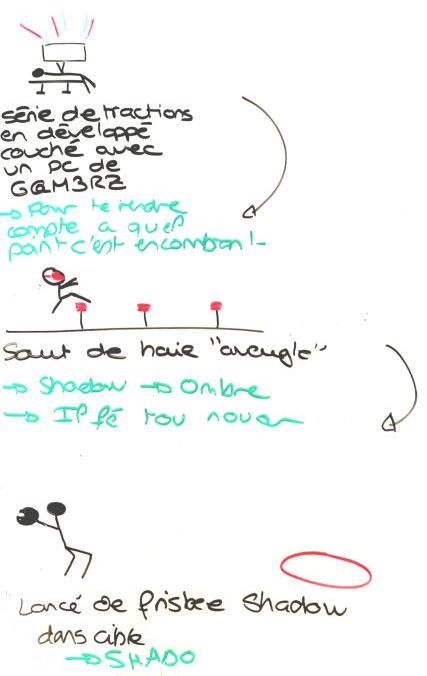 série de tractions
en développé
couché avec
un PC de
G@M3RZ
→ Pour te rendre
compte a quel
point c'est encombran!-
Saut de haie "aveugle"
→ Shadow → Ombre
→ Il fé tou nouar
Lancé de frisbee Shadow
dans cible
→ SHADO